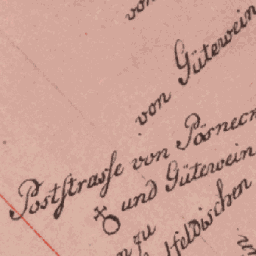 von
von Güterwein
Poststrasse von Posneck
und Güterwein
zu